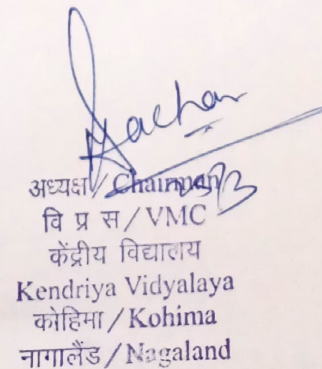 अध्यक्ष / Chairman
वि प्र स / VMC
केंद्रीय विद्यालय
Kendriya Vidyalaya
कोहिमा / Kohima
नागालैंड / Nagaland